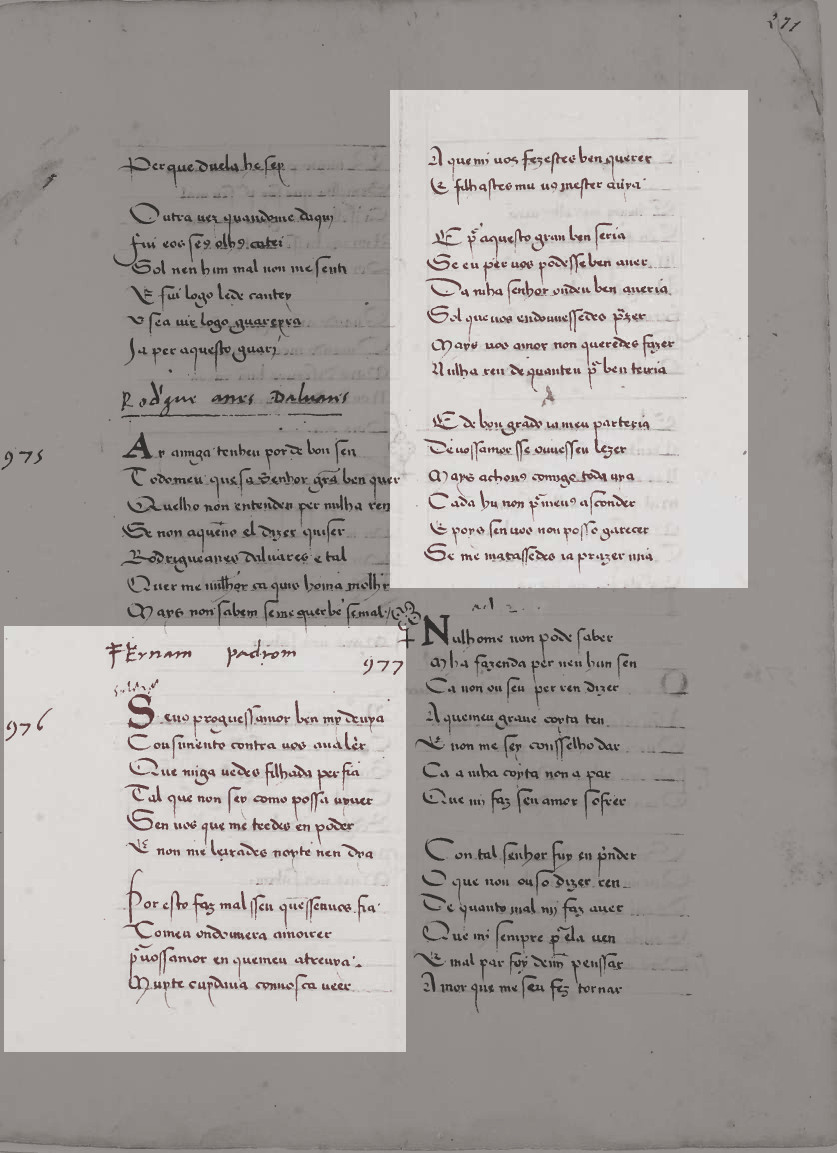 271
Per que duela he sey
Outra uez quandome daqui
fui eos seꝯ olhꝯ catei
Sol nen hun mal non me senti
E fui logo ledo cantey
Ja per aquesto guari
Rod'gue anes Daluares
975
Ar amiga tenheu por de bon sen
Todomeu que sa Senhor grã ben quer
Quelho non entenden per nulha ren
Se non aqueno el dizer quiser
Rodrigueanes daluares e tal
Quer me milhor ca quis homa molhr
Mays non sabem se me quer be se mal
Fernam padrom
977
976
Se uos prouguessamor ben my deuya
Cousimento contra uos aualer
Que miga uedes filhada perfia
Tal que non sey como possa uyuer
Sen uos que me teedes en poder
E non me leixades noyte nen dya
Por esto faz mal sseu que ssenuos fia
Tomeu ondouuera amoirer
p̃uossamor en quemeu atreuya
Muyte cuydaua conuosca ueer
A que mi uos fezestes ben querer
E filhastes mu us mester auya
E p̃ aquesto gran ben seria
Se eu per uos podesse ben auer
Da mha senhor onden ben aueria
Sol que uos endouuessedes p̃zer
Mays uos amor non queredes fazer
Nulha ren de quanteu p̃ ben teiria
E de bon grado ia meu parteria
Deuossamor sse ouuesseu lezer
Mays achouꝯ comigo toda uya
Cada hu non p̃meuꝯ asconder
E poys sen uos non posso garecer
Se me matassedes ia prazer mia
Nulhome non pode saber
Mha fazenda per neu hun sen
Ca non ou seu per ren dizer
A quemeu graue coyta ten
E non me sey consselho dar
Ca a mha coyta non a par
Que mi faz seu amor sofrer
Con tal senhor fuy en p̃nder
O que non ouso dizer ren
De quanto mal mj faz auer
Que mi sempre p̃ ela uen
E mal par foy demj penssar
Amor que me seu fez tornar